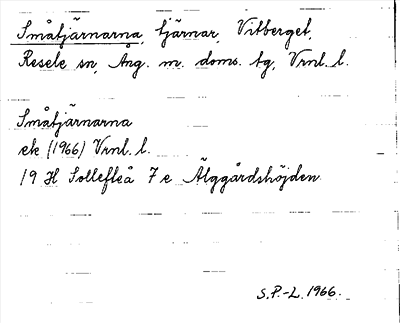 Småtjärnarna, tjärnar, Vitberget,
Resele sn, Ång. m. doms. tg, Vrnl. l.
Småtjärnarna
ek (1966) Vrnl. l.
19 H Sollefteå 7 e Älggårdshöjden
S.P.-L. 1966.